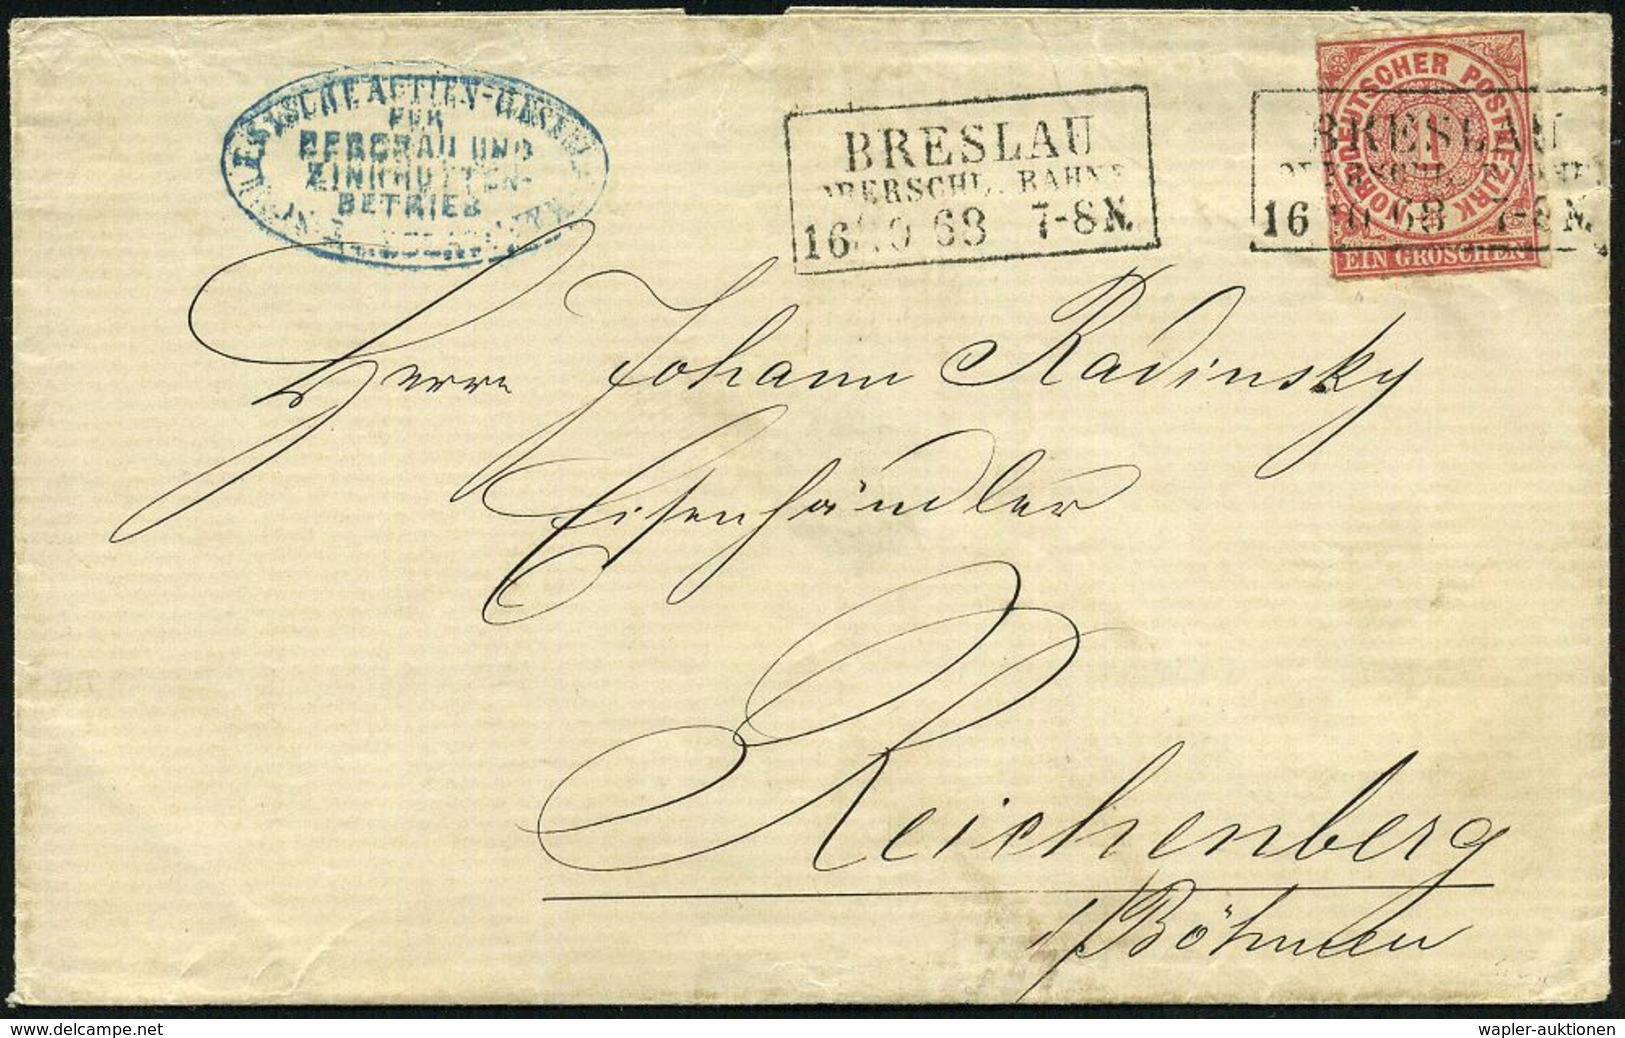 SCHLESISCHE ACTIEN-GESELL
FÜR
BERGBAU UND
ZINKHÜTTEN-
BETRIEB
BRESLAU
OBERSCHL. BAHNH
16 10 68 7-8 N.
NORDDEUTSCHER POSTBEZIRK
1
EIN GROSCHEN
BRESLAU
OBERSCHL. BAHNH
16 10 68 7-8 N.
Herrn Johann Radinsky
Eisenhändler
Reichenberg
i/Böhmen
© www.delcampe.net
wapler-auktionen